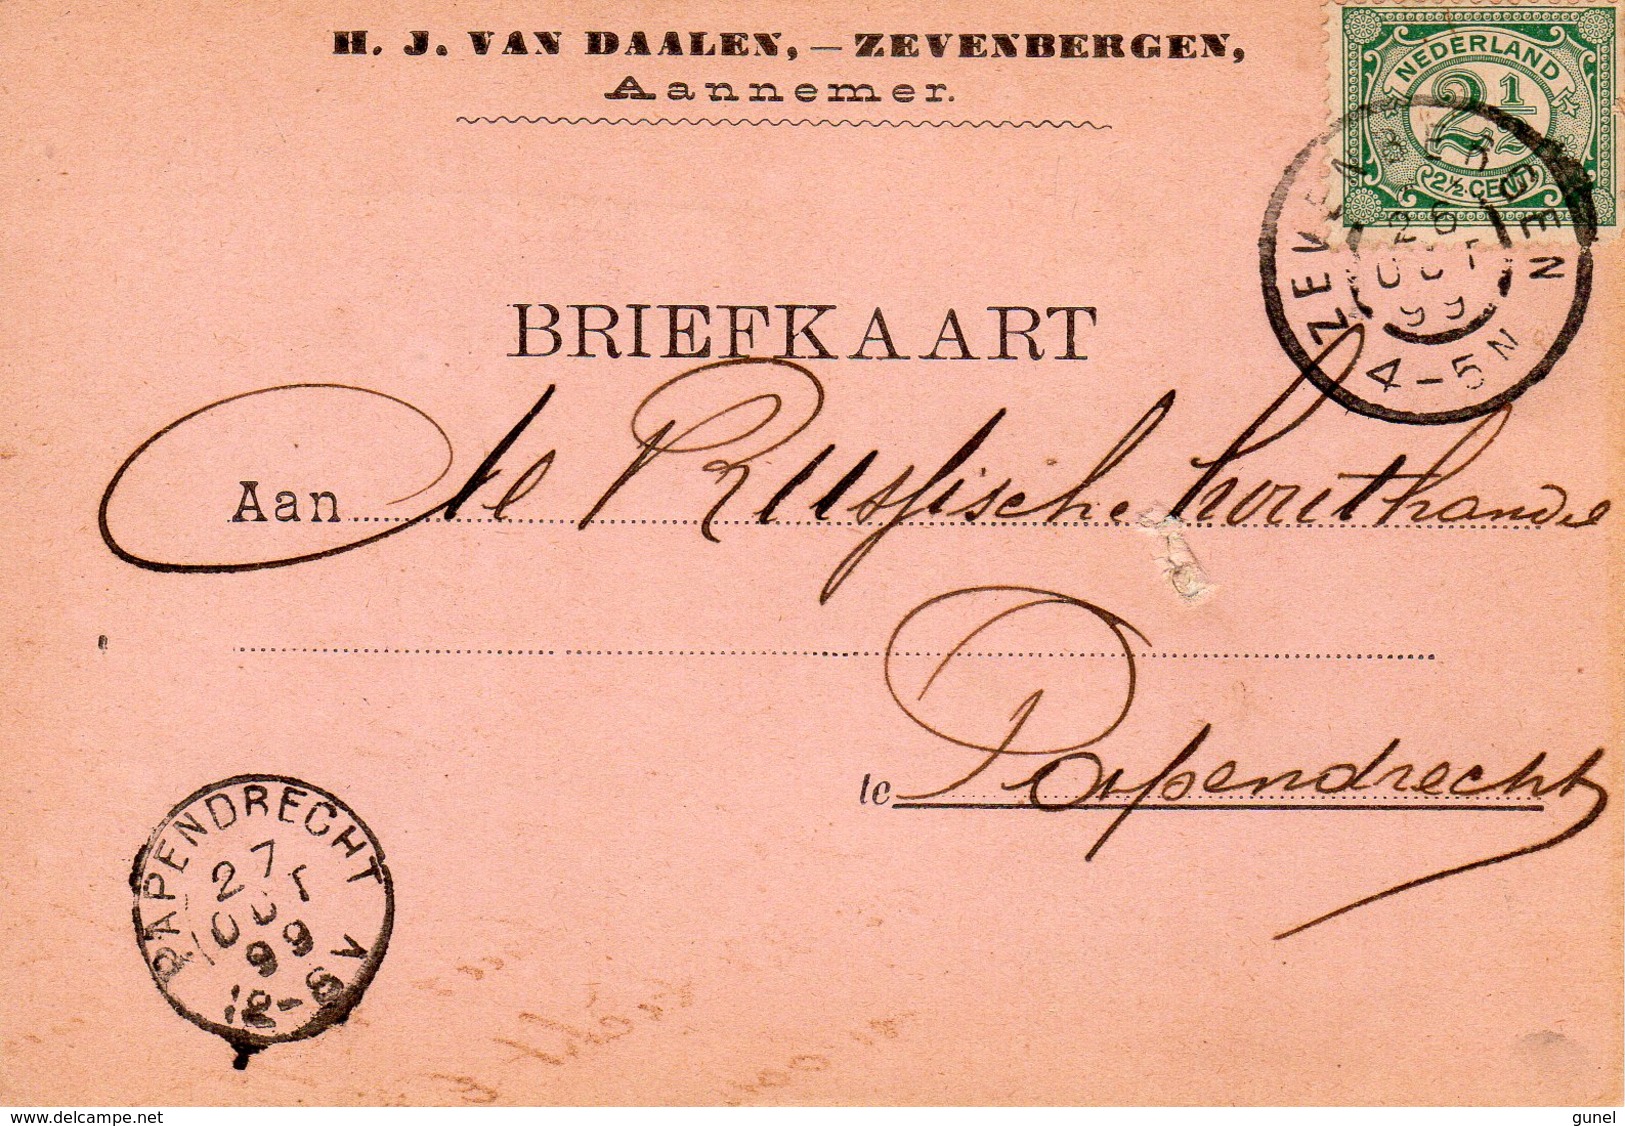 H. J. VAN DAALEN, — ZEVENBERGEN,
Aannemer.
NEDERLAND
2½
2½ CENT
ZEVENBERGEN
26
OCT
99
4-5N
BRIEFKAART
Aan de Russische houthandel
te Papendrecht
PAPENDRECHT
27
OCT
99
12-8V
www.delcampe.net
gunel